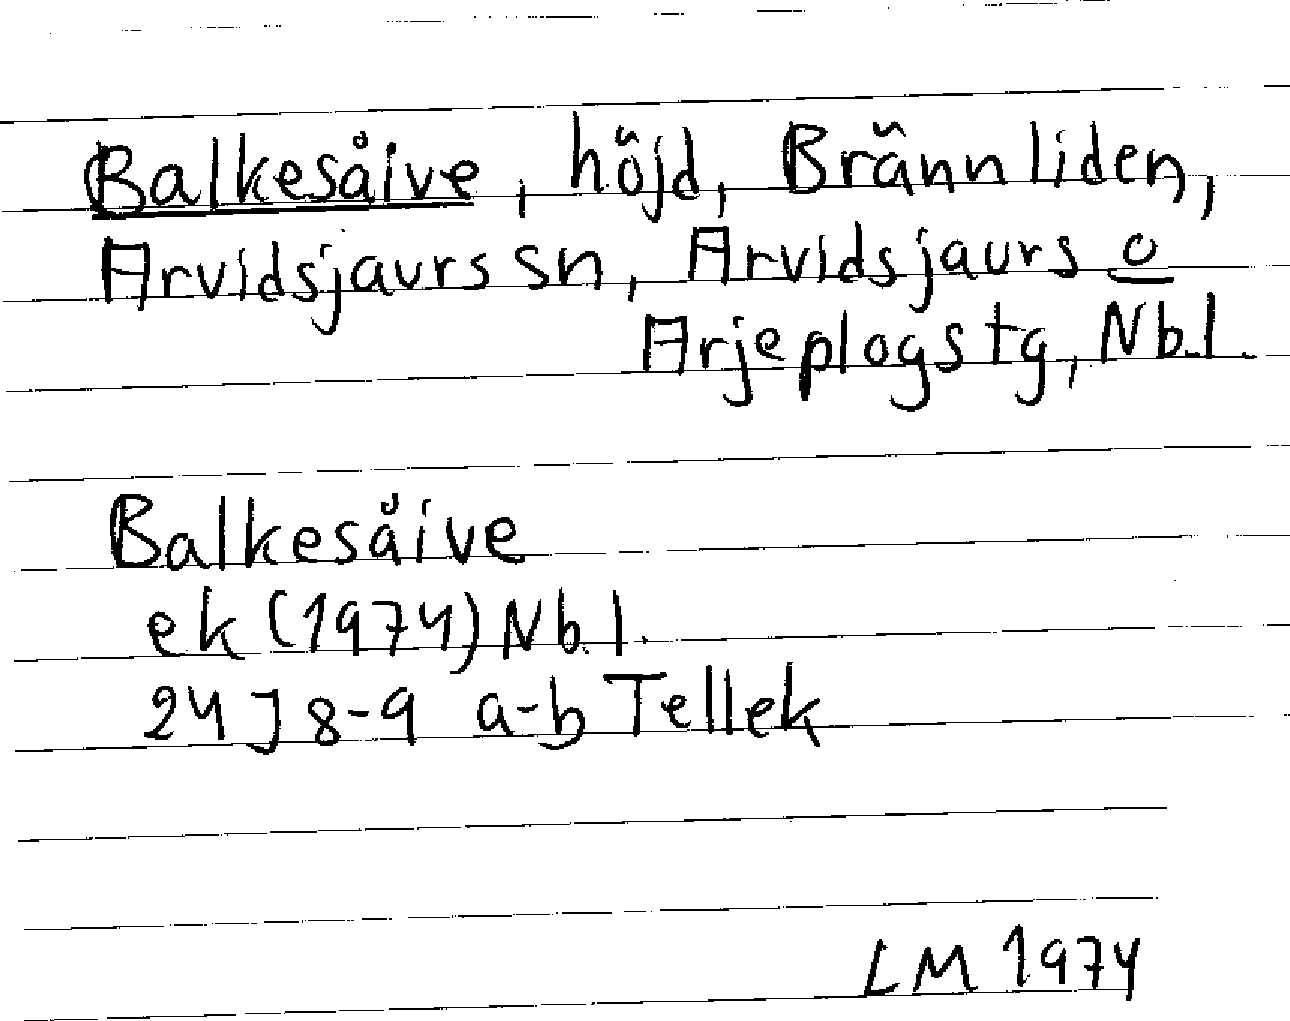 Balkesåive, höjd, Brännliden,
Arvidsjaurs sn, Arvidsjaurs o
Arjeplogs tg, Nb.l.
Balkesåive
ek (1974) Nb.l.
24 J 8-9 a-b Tellek
LM 1974